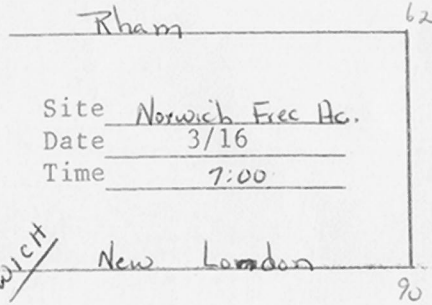 Rham 62
Site Norwich Free Ac.
Date 3/16
Time 7:00
WICH
New London
90